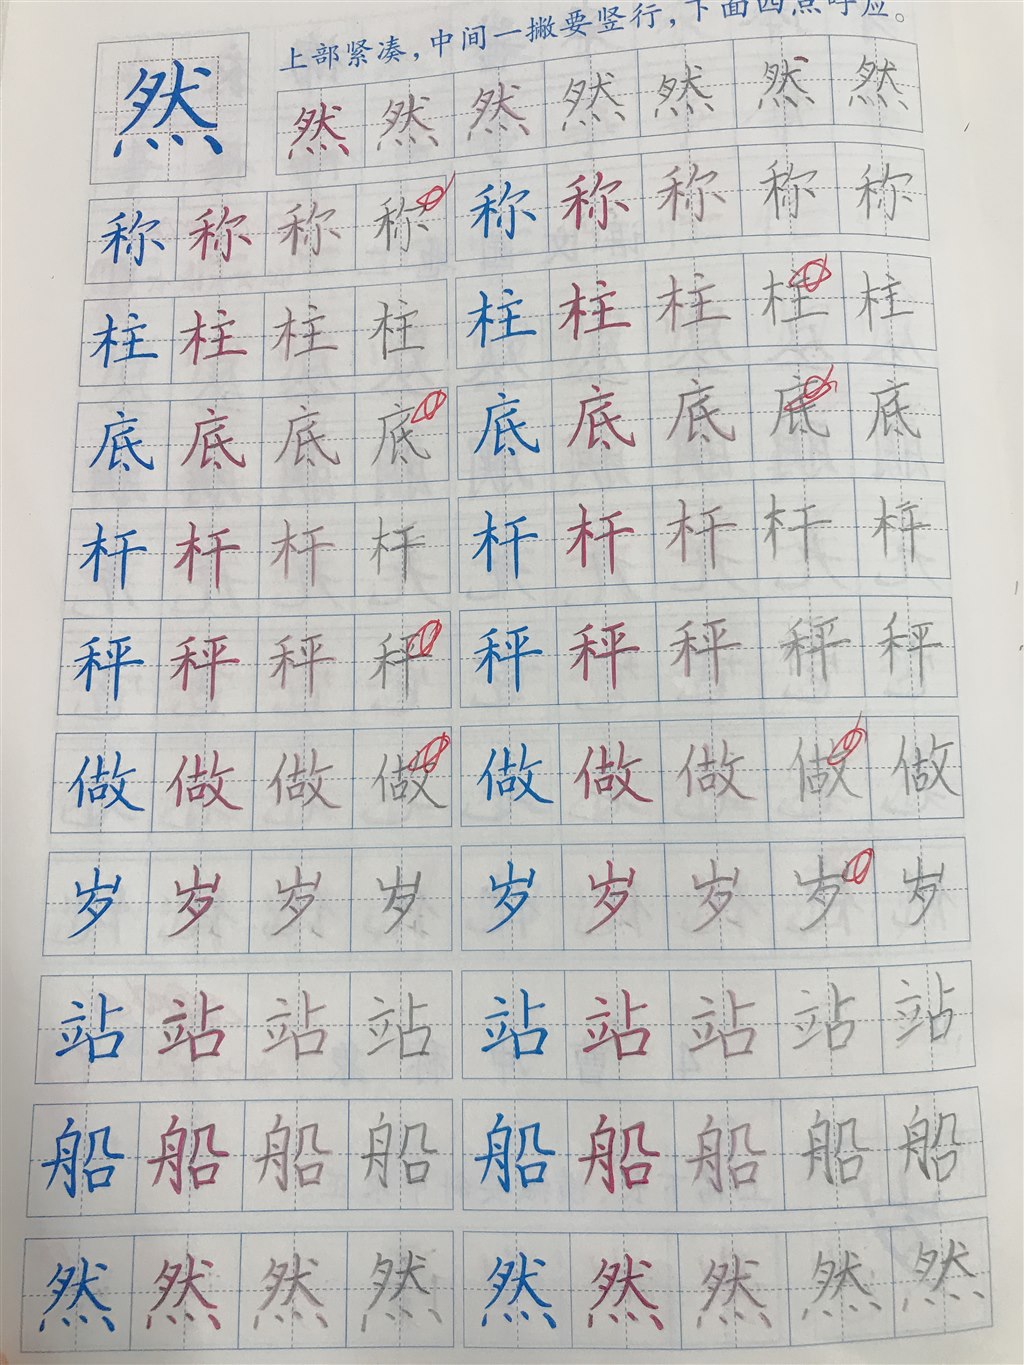 上部紧凑，中间一撇要竖行，下面四点呼应。
然 然 然 然 然 然 然 然
称 称 称 称 称 称 称 称 称
柱 柱 柱 柱 柱 柱 柱 柱 柱
底 底 底 底 底 底 底 底 底
杆 杆 杆 杆 杆 杆 杆 杆 杆
秤 秤 秤 秤 秤 秤 秤 秤 秤
做 做 做 做 做 做 做 做 做
岁 岁 岁 岁 岁 岁 岁 岁 岁
站 站 站 站 站 站 站 站 站
船 船 船 船 船 船 船 船 船
然 然 然 然 然 然 然 然 然